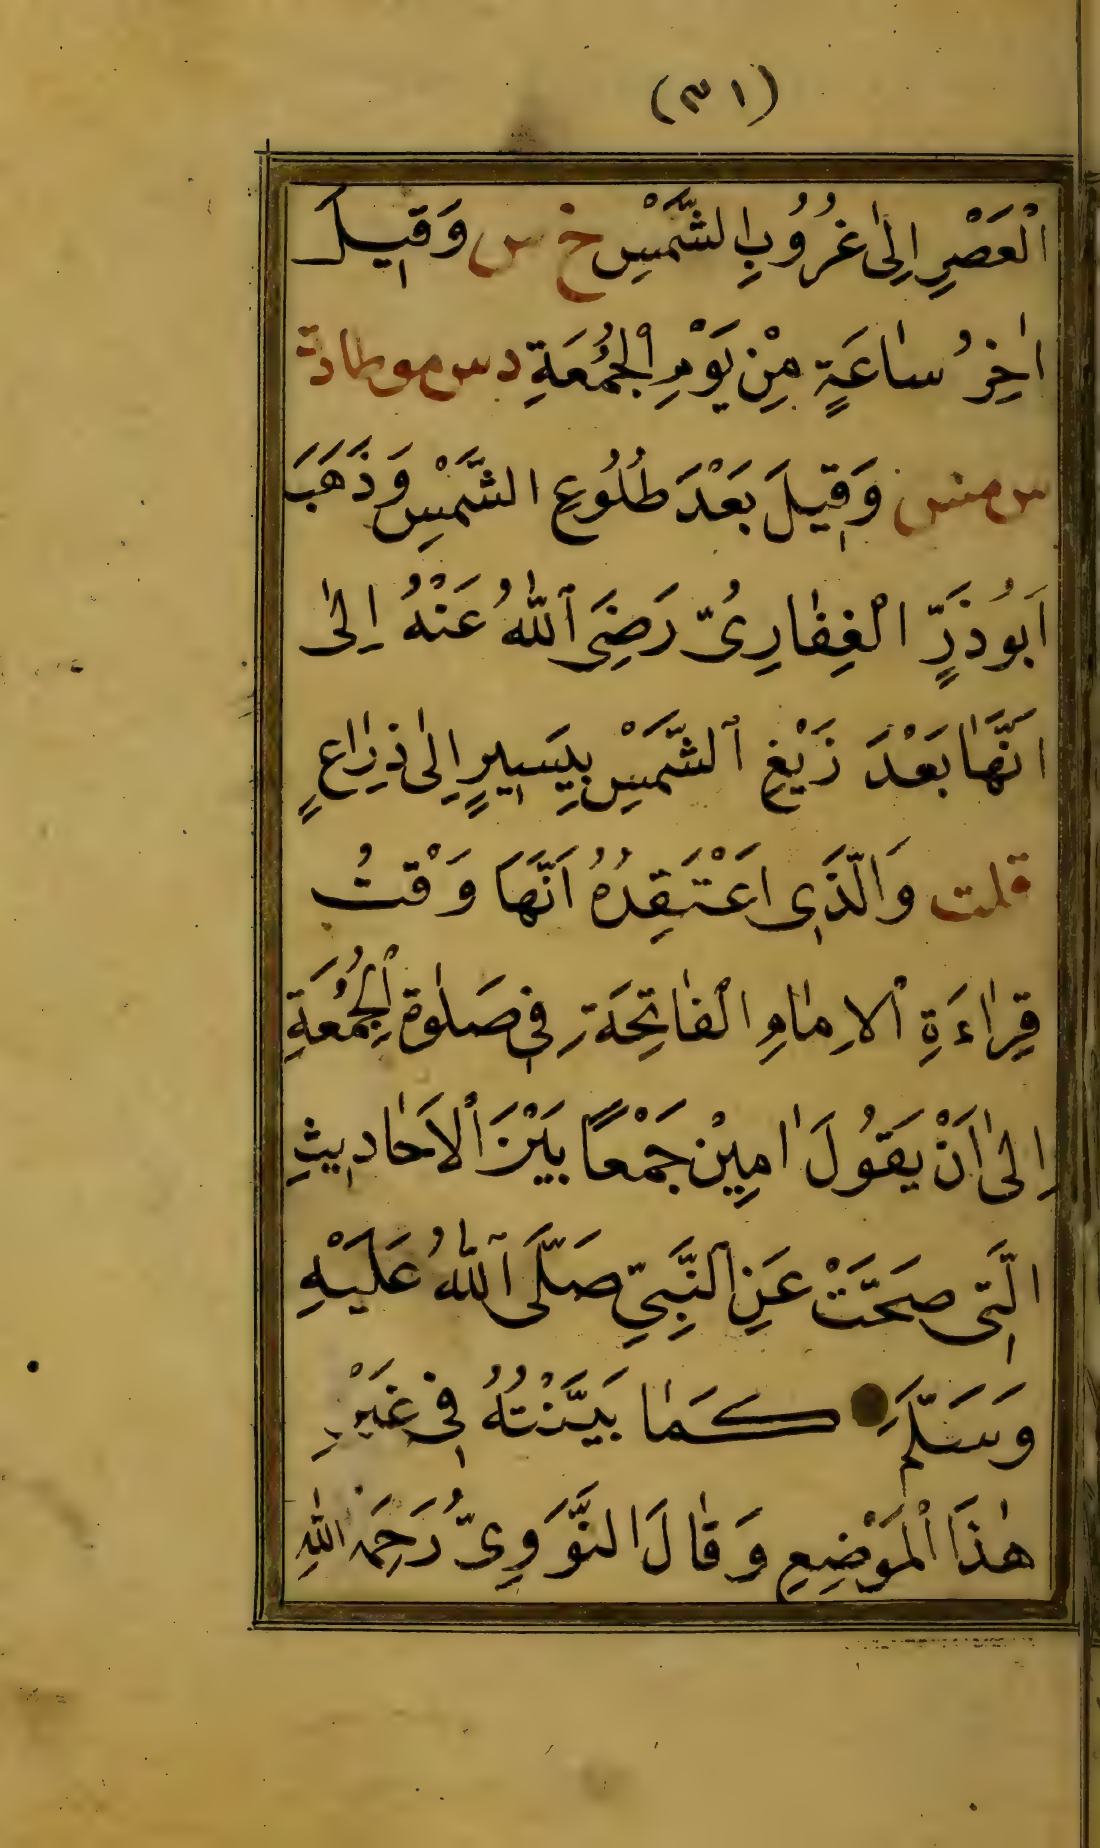 (٣١)
الْعَصْرِ اِلٰى غُرُوُبِ الشَّمْسِ خ س وَقيٖلَ
اٰخِرُ سٰاعَةٍ مِنْ يَوْمِ الْجُمُعَةِ د س مو طا د ت
س مس وَقيٖلَ بَعْدَ طُلُوُعِ الشَّمْسِ وَذَهَبَ
اَبُو ذَرٍّ الْغِفٰارِىُّ رَضِىَ ٱللّٰهُ عَنْهُ اِلىٰ
اَنَّهٰا بَعْدَ زَيْغِ ٱلشَّمْسِ بِيَسيٖرٍ اِلٰى ذِرٰاعٍ
قلت وَالَّذى اَعْتَقِدُهُ اَنَّهَا وَقْتُ
قِرٰاءَةِ ٱلاِمٰامِ الْفٰاتِحَةَ فى صَلٰوةِ الْجُمُعَةِ
اِلىٰ اَنْ يَقوُلَ اٰمِيْن جَمْعًا بَيْنَ ٱلاَحٰاديثِ
الَّتى صَحَّتْ عَنِ ٱلنَّبِىِّ صَلَّى ٱللّٰهُ عَلَيْهِ
وَسَلَّمَ كَمٰا بَيَّنْتُهُ فى غَيْرِ
هٰذَا ٱلْمَوْضِعِ وَقٰالَ النَّوَوِىُّ رَحِمَهُ اللّٰهِ